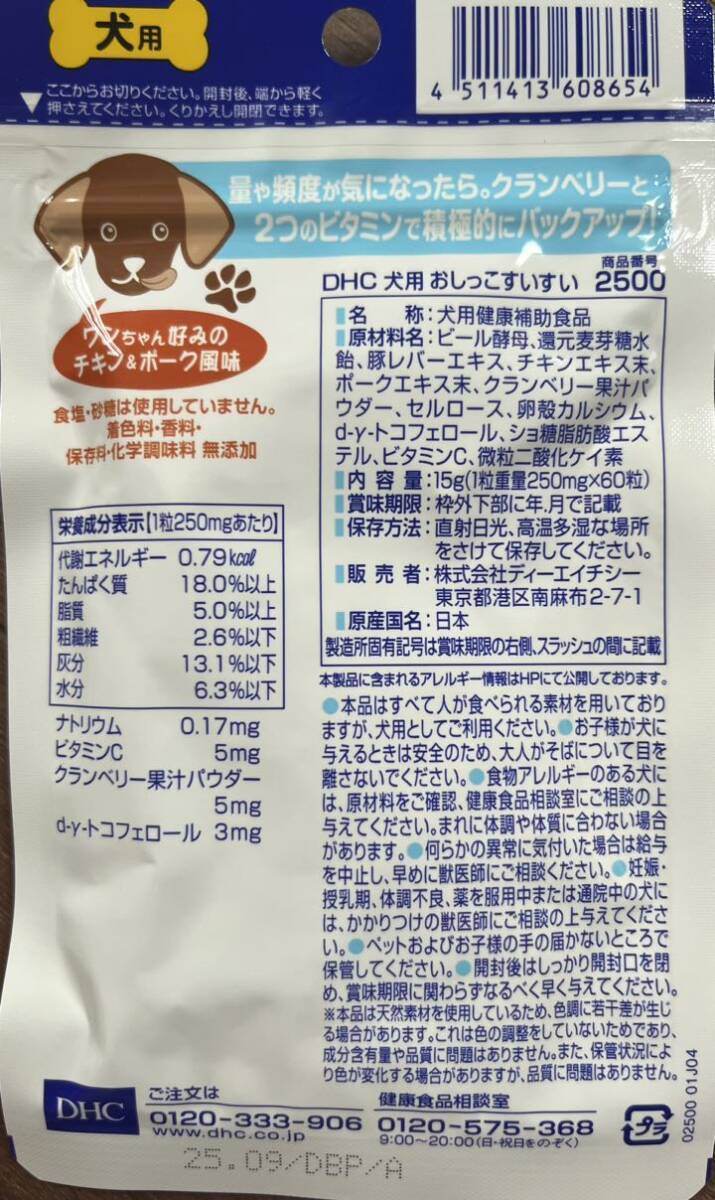 犬用
4 511413 608654
ここからお切りください。開封後、端から軽く
押さえてください。くりかえし開閉できます。
量や頻度が気になったら。クランベリーと
2つのビタミンで積極的にバックアップ!
ワンちゃん好みの
チキン&ポーク風味
食塩・砂糖は使用していません。
着色料・香料・
保存料・化学調味料 無添加
栄養成分表示【1粒250mgあたり】
代謝エネルギー 0.79kcal
たんぱく質 18.0%以上
脂質 5.0%以上
粗繊維 2.6%以下
灰分 13.1%以下
水分 6.3%以下
ナトリウム 0.17mg
ビタミンC 5mg
クランベリー果汁パウダー
5mg
d-γ-トコフェロール 3mg
商品番号
DHC 犬用 おしっこすいすい 2500
名 称:犬用健康補助食品
原材料名:ビール酵母、還元麦芽糖水
飴、豚レバーエキス、チキンエキス末、
ポークエキス末、クランベリー果汁パ
ウダー、セルロース、卵殻カルシウム、
d-γ-トコフェロール、ショ糖脂肪酸エス
テル、ビタミンC、微粒二酸化ケイ素
内 容 量:15g(1粒重量250mg×60粒)
賞味期限:枠外下部に年.月で記載
保存方法:直射日光、高温多湿な場所
をさけて保存してください。
販 売 者:株式会社ディーエイチシー
東京都港区南麻布2-7-1
原産国名:日本
製造所固有記号は賞味期限の右側、スラッシュの間に記載
本製品に含まれるアレルギー情報はHPにて公開しております。
●本品はすべて人が食べられる素材を用いており
ますが、犬用としてご利用ください。●お子様が犬に
与えるときは安全のため、大人がそばについて目を
離さないでください。●食物アレルギーのある犬に
は、原材料をご確認、健康食品相談室にご相談の上
与えてください。まれに体調や体質に合わない場合
があります。●何らかの異常に気付いた場合は給与
を中止し、早めに獣医師にご相談ください。●妊娠・
授乳期、体調不良、薬を服用中または通院中の犬に
は、かかりつけの獣医師にご相談の上与えてくださ
い。●ペットおよびお子様の手の届かないところで
保管してください。●開封後はしっかり開封口を閉
め、賞味期限に関わらずなるべく早く与えてください。
※本品は天然素材を使用しているため、色調に若干差が生じ
る場合があります。これは色の調整をしていないためであり、
成分含有量や品質に問題はありません。また、保管状況によ
り色が変化する場合がありますが、品質に問題はありません。
DHC
ご注文は
0120-333-906
www.dhc.co.jp
健康食品相談室
0120-575-368
9:00~20:00(日・祝日をのぞく)
プラ
02500 01J04
25.09/DBP/A